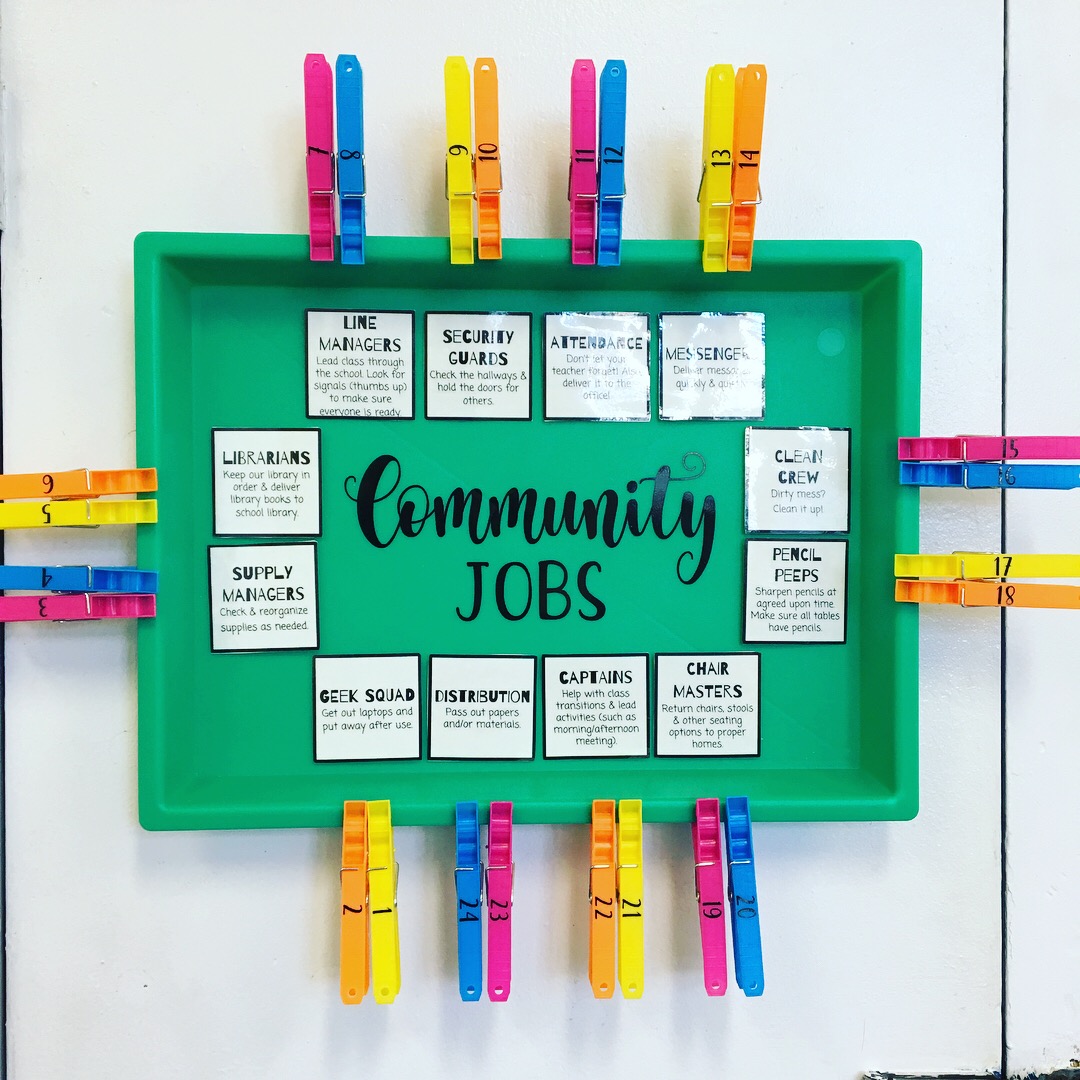 7
8
9
10
11
12
13
14
LINE
MANAGERS
Lead class through
the school. Look for
signals (thumbs up)
to make sure
everyone is ready.
SECURITY
GUARDS
Check the hallways &
hold the doors for
others.
ATTENDANCE
Don't let your
teacher forget! Also
deliver it to the
office!
MESSENGER
Deliver messages
quickly &
LIBRARIANS
Keep our library in
order & deliver
library books to
school library.
CLEAN
CREW
Dirty mess?
Clean it up!
6
5
4
3
15
16
17
18
Community
JOBS
SUPPLY
MANAGERS
Check & reorganize
supplies as needed.
PENCIL
PEEPS
Sharpen pencils at
agreed upon time.
Make sure all tables
have pencils.
GEEK SQUAD
Get out laptops and
put away after use.
DISTRIBUTION
Pass out papers
and/or materials.
CAPTAINS
Help with class
transitions & lead
activities (such as
morning/afternoon
meeting).
CHAIR
MASTERS
Return chairs, stools
& other seating
options to proper
homes.
2
1
24
23
22
21
19
20